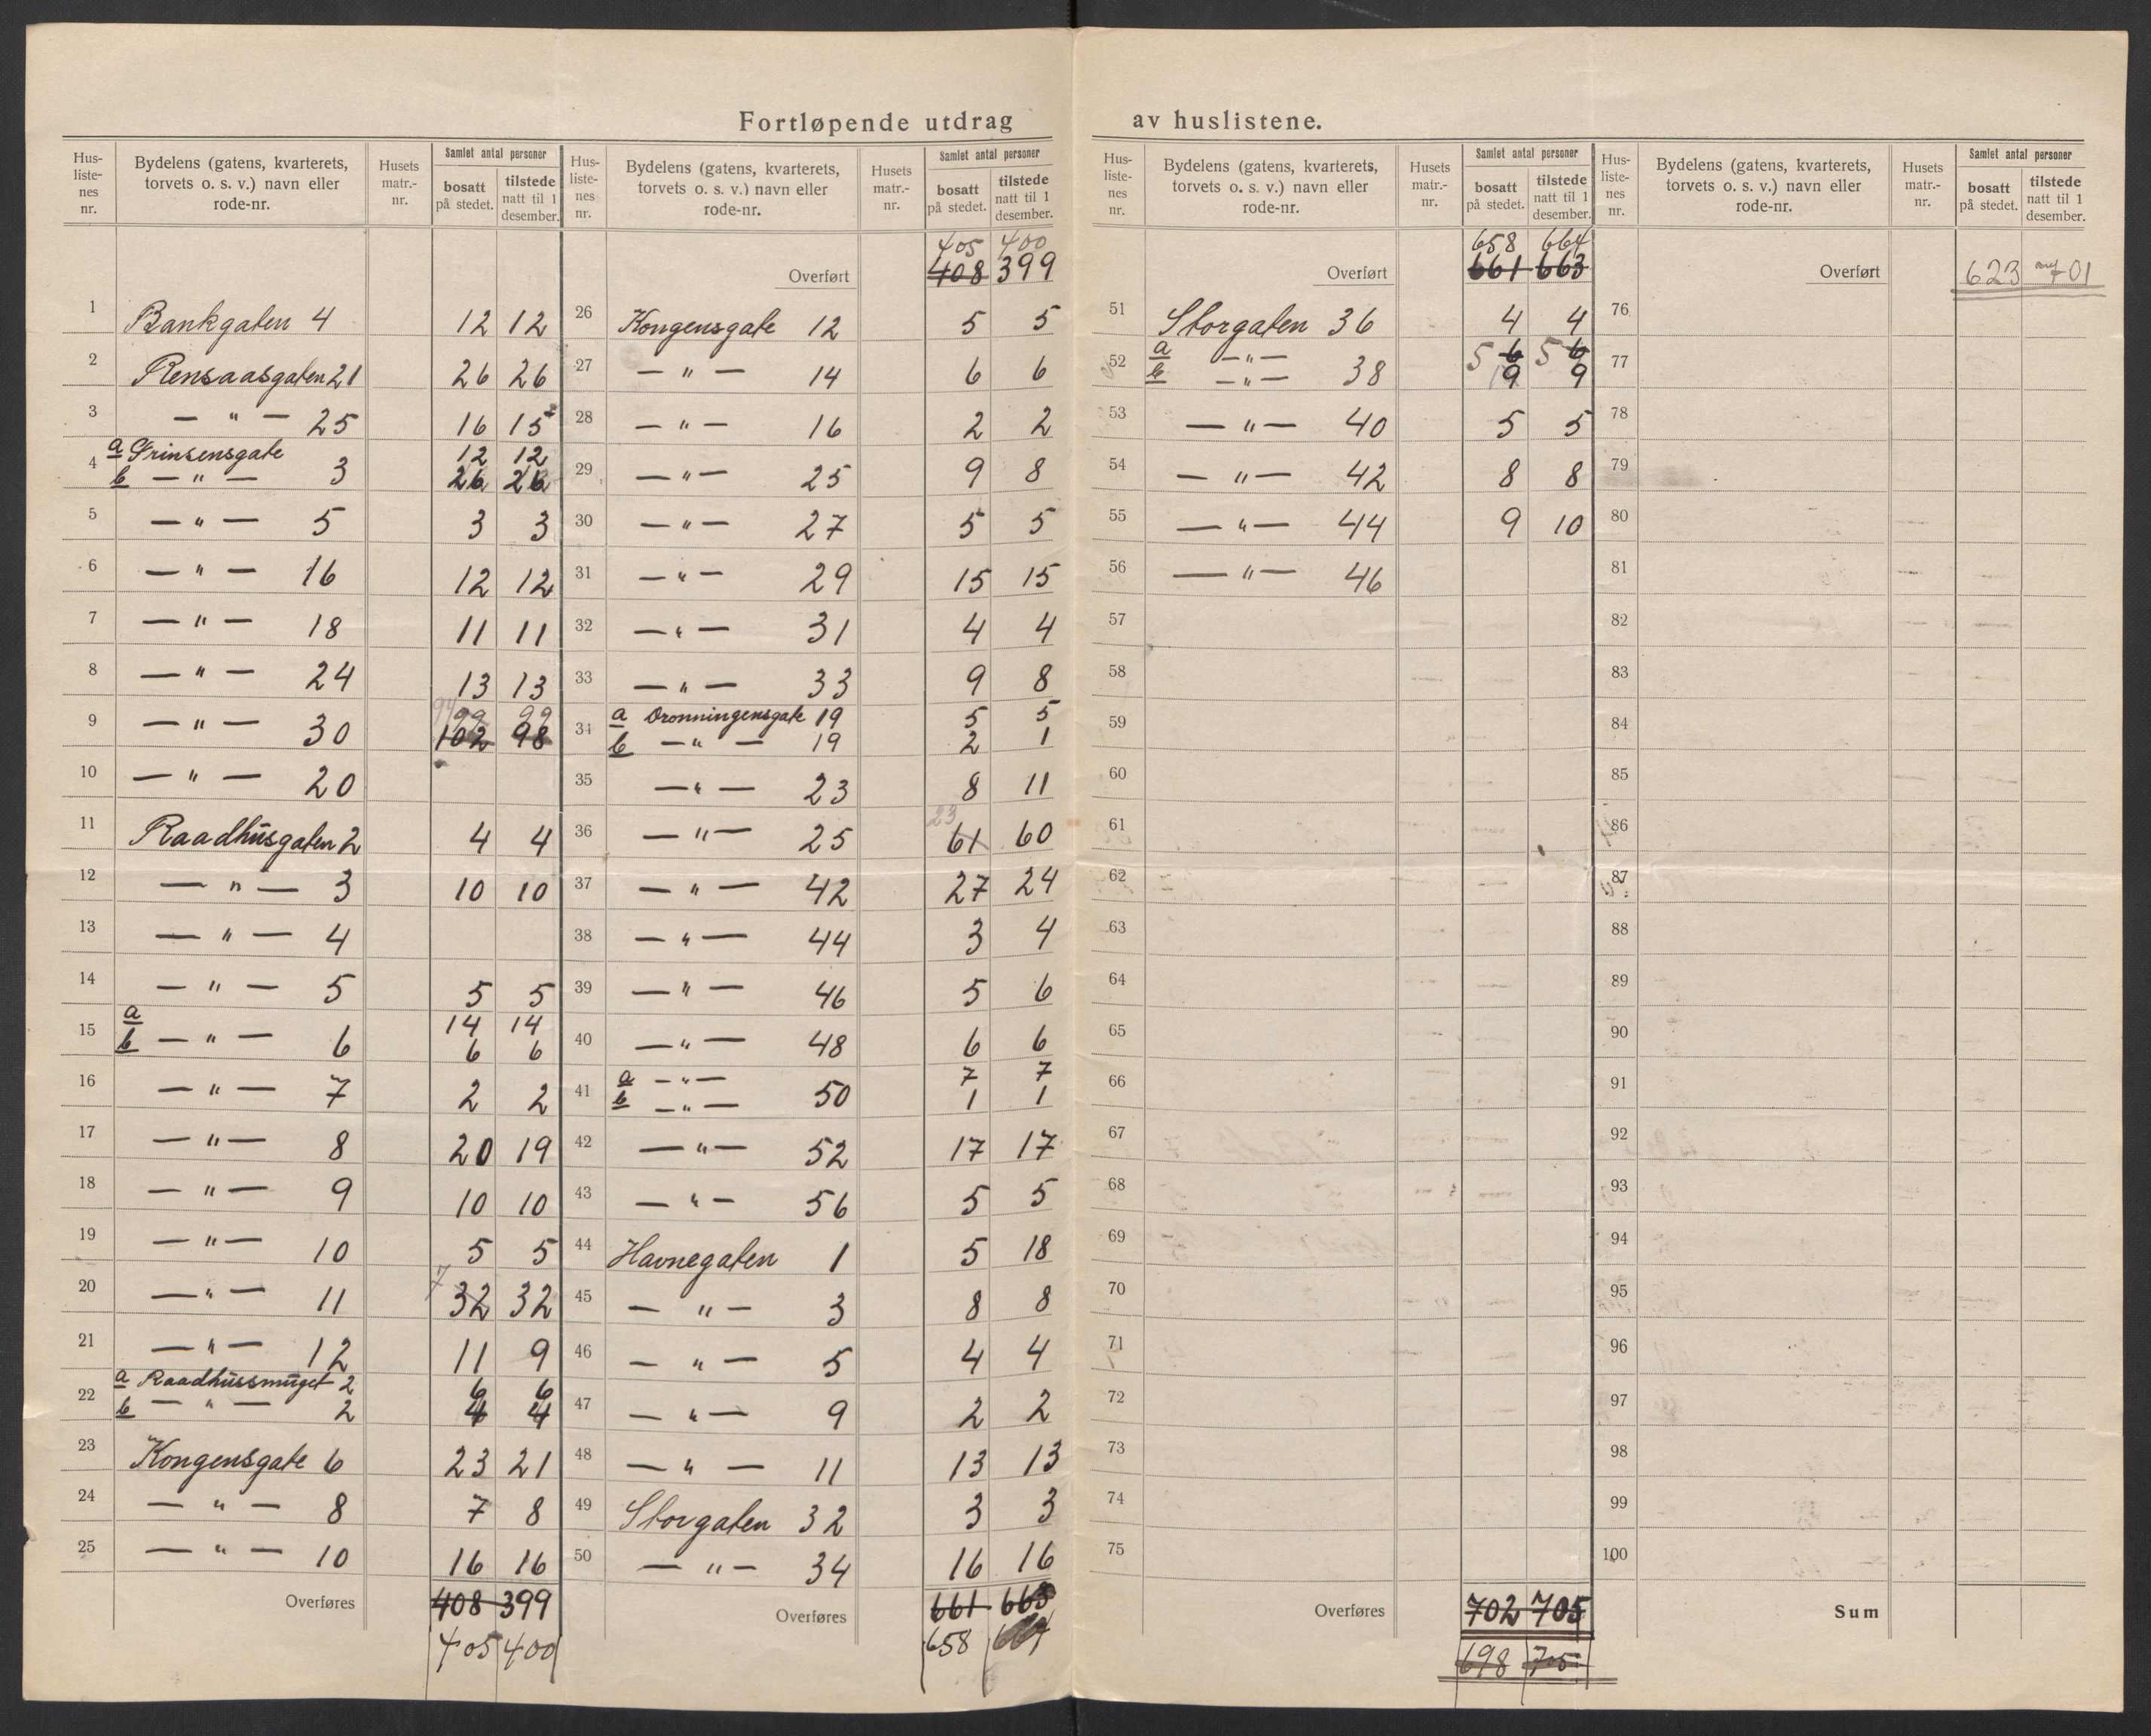 Fortløpende utdrag av huslistene.
Hus-listenes nr. | Bydelens (gatens, kvarterets, torvets o. s. v.) navn eller rode-nr. | Husets matr.-nr. | Samlet antal personer | bosatt på stedet. | tilstede natt til 1 desember.
1 Bankgaten 4 12 12
2 Rensaasgaten 21 26 26
3 — " — 25 16 15
4 a Prinsensgate 12 12
b — " — 3 26 26
5 — " — 5 3 3
6 — " — 16 12 12
7 — " — 18 11 11
8 — " — 24 13 13
94 99 99
9 — " — 30 102 98
10 — " — 20
11 Raadhusgaten 2 4 4
12 — " — 3 10 10
13 — " — 4
14 — " — 5 5 5
15 a 14 14
b — " — 6 6 6
16 — " — 7 2 2
17 — " — 8 20 19
18 — " — 9 10 10
19 — " — 10 5 5
20 — " — 11 7 32 32
21 — " — 12 11 9
22 a Raadhüssmüget 2 6 6
b — " — 2 4 4
23 Kongensgate 6 23 21
24 — " — 8 7 8
25 — " — 10 16 16
Overføres 408 399
405 400
Hus-listenes nr. | Bydelens (gatens, kvarterets, torvets o. s. v.) navn eller rode-nr. | Husets matr.-nr. | Samlet antal personer | bosatt på stedet. | tilstede natt til 1 desember.
405 400
Overført 408 399
26 Kongensgate 12 5 5
27 — " — 14 6 6
28 — " — 16 2 2
29 — " — 25 9 8
30 — " — 27 5 5
31 — " — 29 15 15
32 — " — 31 4 4
33 — " — 33 9 8
34 a Dronningensgate 19 5 5
b — " — 19 2 1
35 — " — 23 8 11
36 — " — 25 23 61 60
37 — " — 42 27 24
38 — " — 44 3 4
39 — " — 46 5 6
40 — " — 48 6 6
41 a — " — 7 7
b — " — 50 1 1
42 — " — 52 17 17
43 — " — 56 5 5
44 Havnegaten 1 5 18
45 — " — 3 8 8
46 — " — 5 4 4
47 — " — 9 2 2
48 — " — 11 13 13
49 Storgaten 32 3 3
50 — " — 34 16 16
Overføres 661 663
658 664
Hus-listenes nr. | Bydelens (gatens, kvarterets, torvets o. s. v.) navn eller rode-nr. | Husets matr.-nr. | Samlet antal personer | bosatt på stedet. | tilstede natt til 1 desember.
658 664
Overført 661 663
51 Storgaten 36 4 4
52 a — " — 5 6 5 6
b — " — 38 9 9
53 — " — 40 5 5
54 — " — 42 8 8
55 — " — 44 9 10
56 — " — 46
57
58
59
60
61
62
63
64
65
66
67
68
69
70
71
72
73
74
75
Overføres 702 705
698 705
Hus-listenes nr. | Bydelens (gatens, kvarterets, torvets o. s. v.) navn eller rode-nr. | Husets matr.-nr. | Samlet antal personer | bosatt på stedet. | tilstede natt til 1 desember.
Overført 623 701
76
77
78
79
80
81
82
83
84
85
86
87
88
89
90
91
92
93
94
95
96
97
98
99
100
Sum